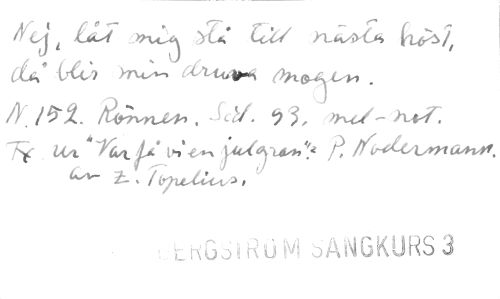 Nej, låt mig stå till nästa höst,
då blir min druva mogen.
N. 152. Rönnen. Sid. 93. mel-not.
Tx ur "Var få vi en julgran": P. Nodermann.
av Z. Topelius.
BERGSTRÖM SÅNGKURS 3